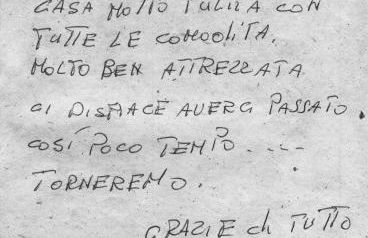 CASA MOLTO PULITA CON
TUTTE LE COMODITA.
MOLTO BEN ATTREZZATA
CI DISPIACE AVERCI PASSATO.
COSÍ POCO TEMPO.----
TORNEREMO.
GRAZIE di TUTTO